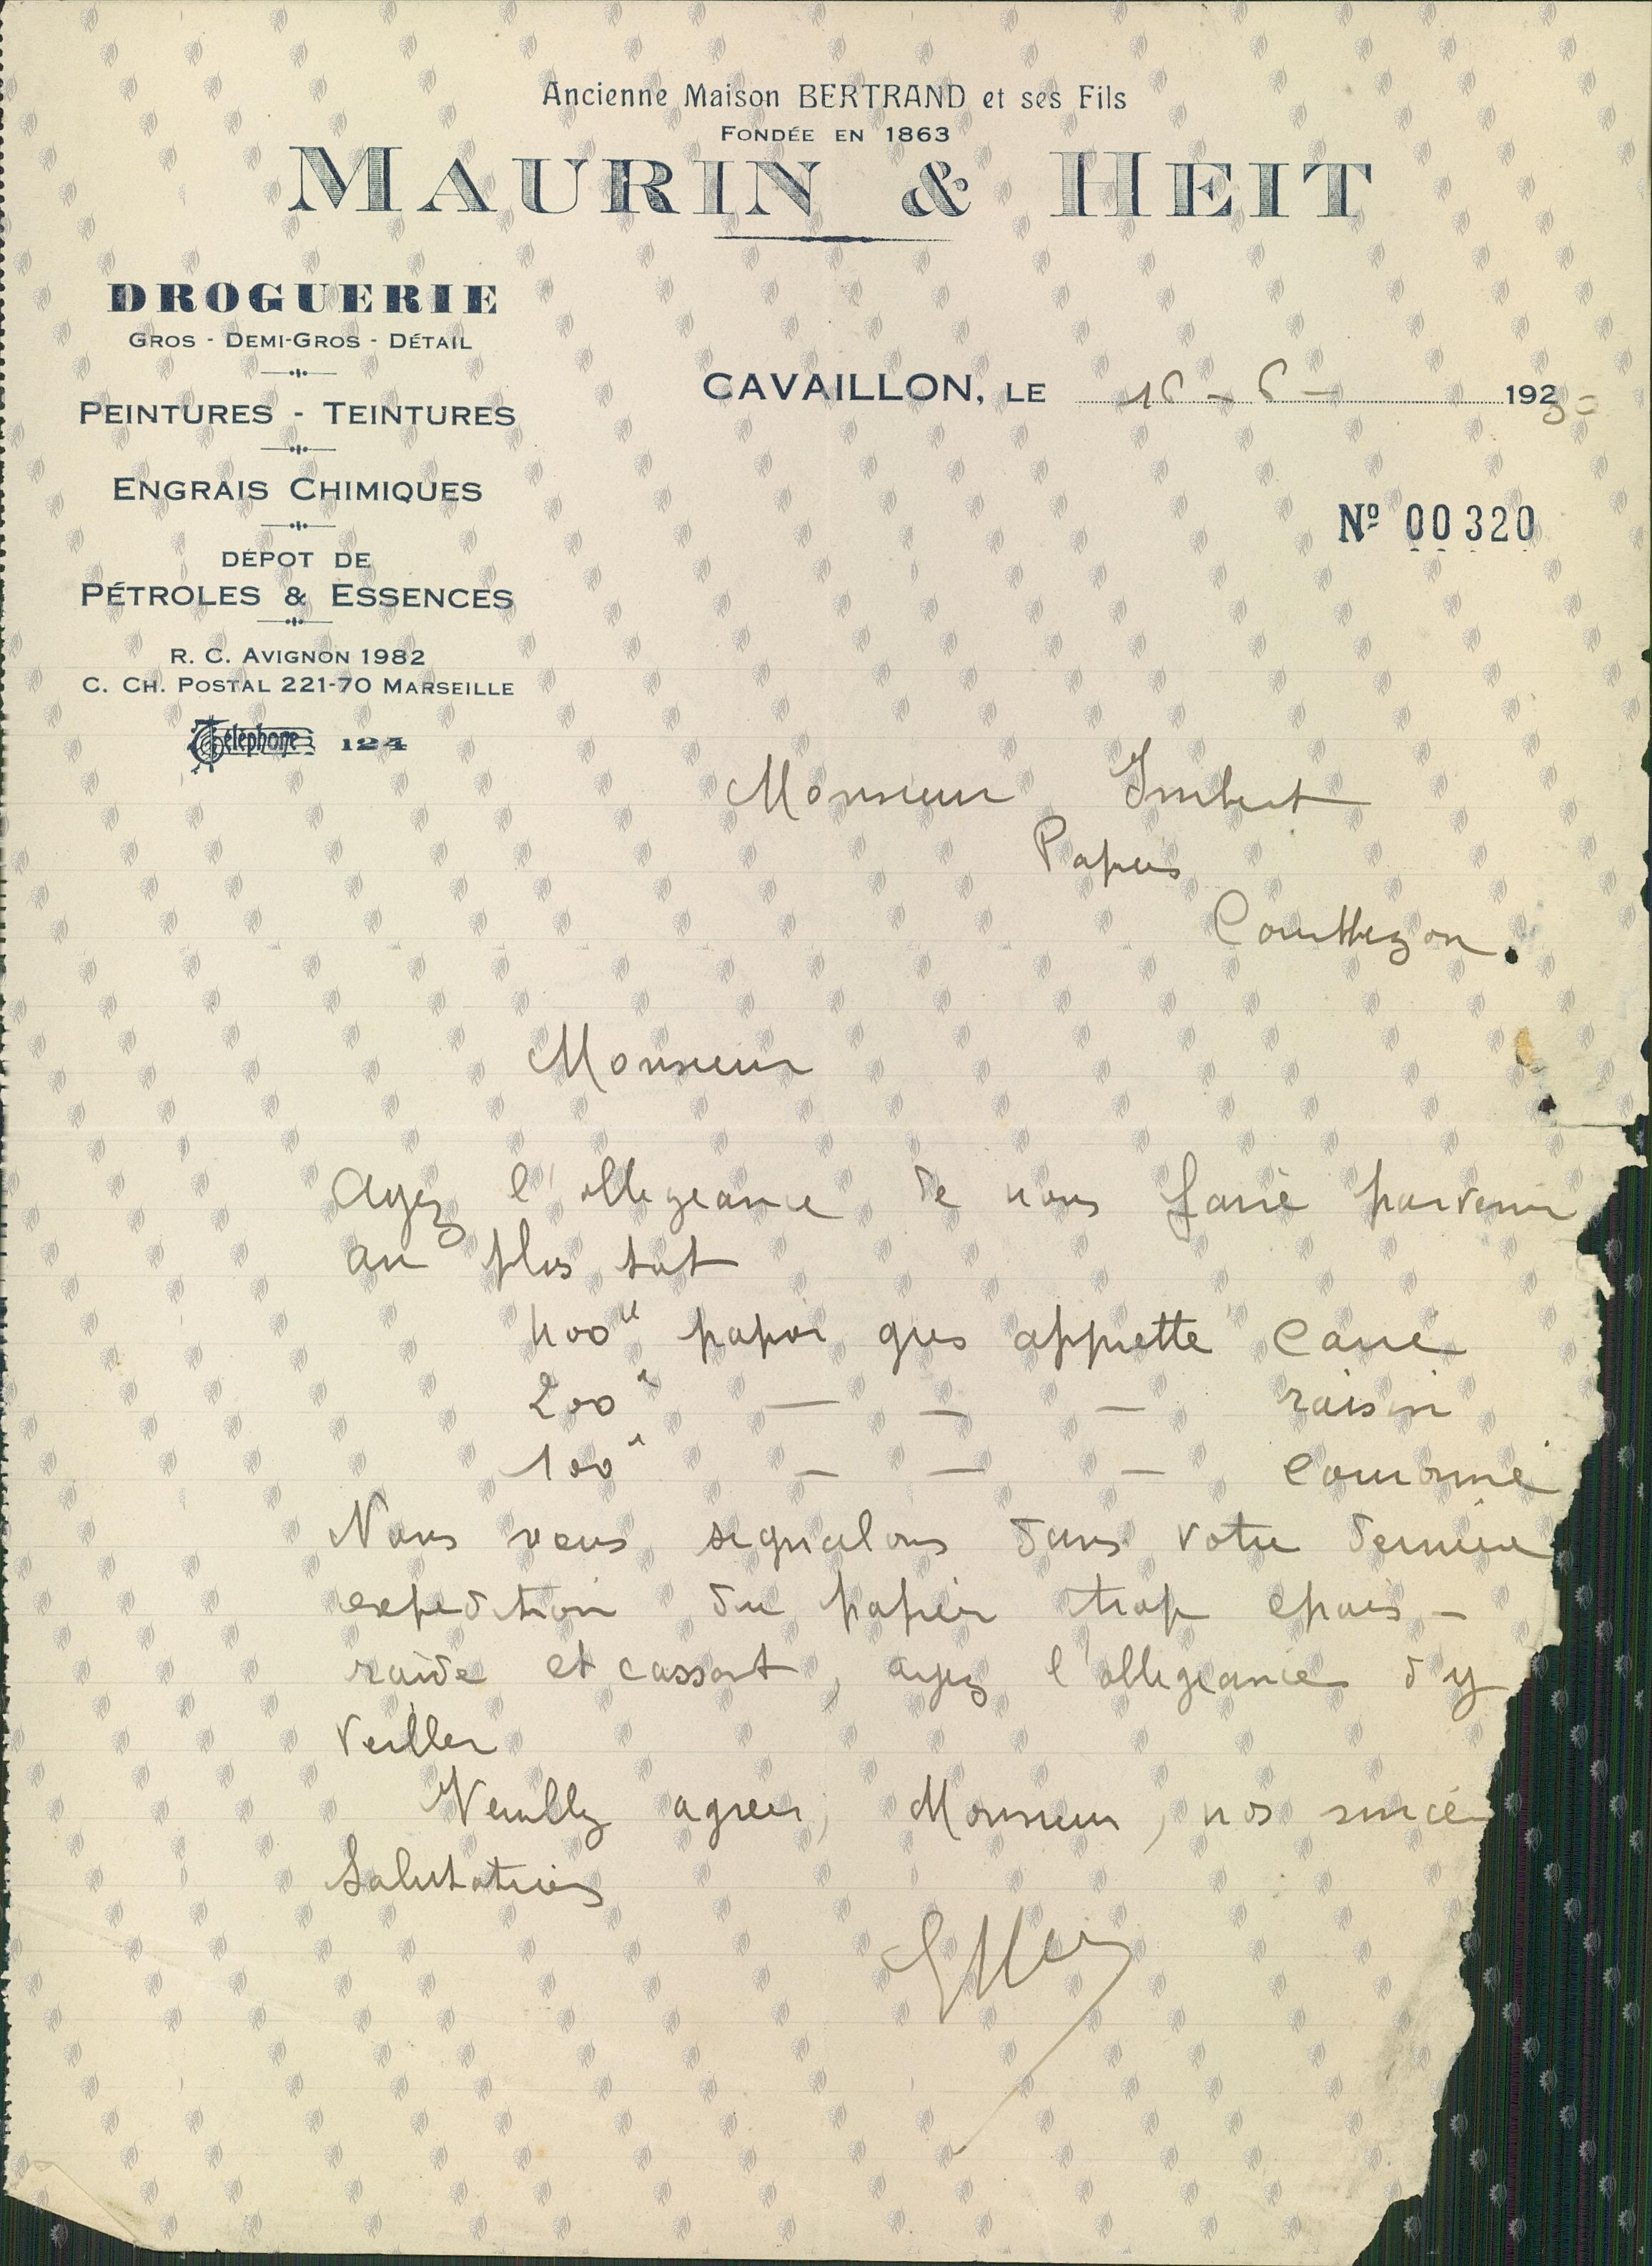 Ancienne Maison BERTRAND et ses Fils
FONDÉE EN 1863
MAURIN & HEIT
DROGUERIE
GROS - DEMI-GROS - DÉTAIL
PEINTURES - TEINTURES
ENGRAIS CHIMIQUES
DÉPOT DE
PÉTROLES & ESSENCES
R. C. AVIGNON 1982
C. CH. POSTAL 221-70 MARSEILLE
Téléphone 124
CAVAILLON, LE 16 - 6 - 1930
Nº 00320
Monsieur Imbert
Papiers
Courthezon.
Monsieur
Ayez l'obligeance de nous faire parvenir
au plus tot
400k papier gris apprette carré
200k — — — raisin
100k — — — couronne
Nous vous signalons dans votre derniere
expedition du papier trop epais -
raide et cassant, ayez l'obligeance d'y
veiller
Veuillez agreer, Monsieur, nos sincè
Salutations